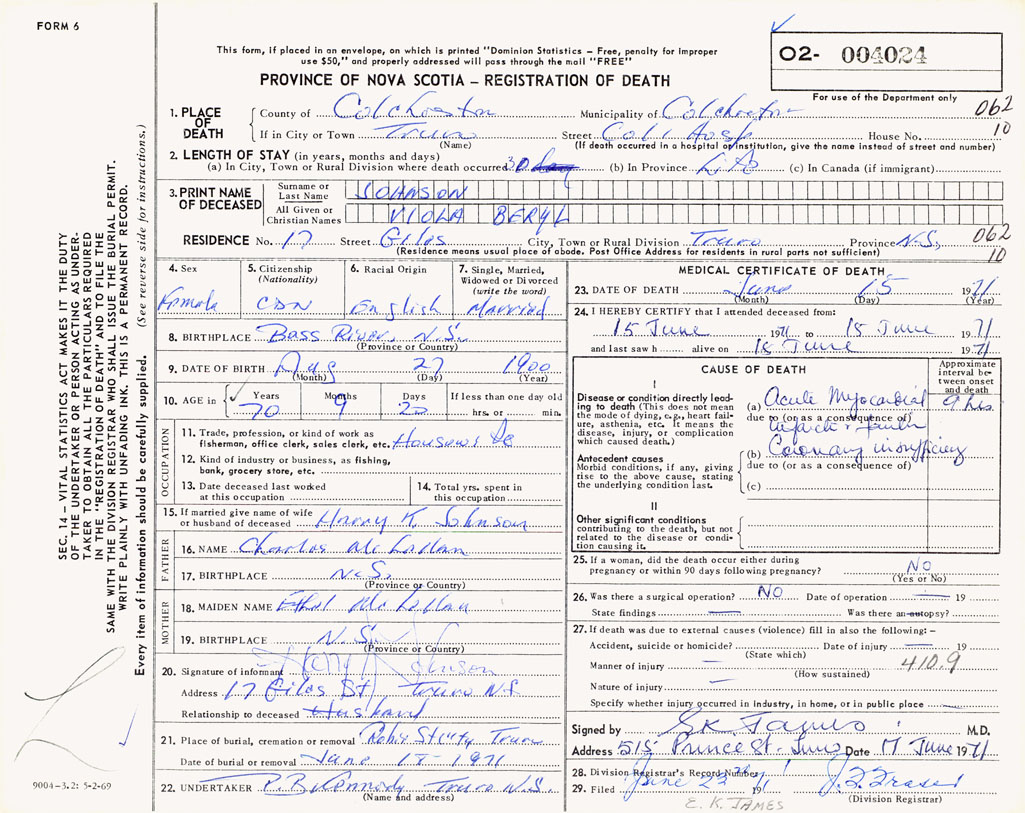 FORM 6
This form, if placed in an envelope, on which is printed "Dominion Statistics – Free, penalty for improper
use $50," and properly addressed will pass through the mail "FREE"
PROVINCE OF NOVA SCOTIA – REGISTRATION OF DEATH
O2- 004024
For use of the Department only
062
10
1. PLACE OF DEATH
County of Colchester Municipality of Colchester
If in City or Town Truro Street Col. Hosp House No.
(Name) (If death occurred in a hospital or institution, give the name instead of street and number)
2. LENGTH OF STAY (in years, months and days)
(a) In City, Town or Rural Division where death occurred (b) In Province Life (c) In Canada (if immigrant)
3. PRINT NAME OF DECEASED
Surname or Last Name JOHNSON
All Given or Christian Names VIOLA BERYL
RESIDENCE No. 17 Street Giles City, Town or Rural Division Truro Province N.S.
(Residence means usual place of abode. Post Office Address for residents in rural parts not sufficient)
062
10
4. Sex
Female
5. Citizenship
(Nationality)
CDN
6. Racial Origin
English
7. Single, Married,
Widowed or Divorced
(write the word)
Married
8. BIRTHPLACE Bass River, N.S.
(Province or Country)
9. DATE OF BIRTH Aug 27 1900
(Month) (Day) (Year)
10. AGE in Years Months Days If less than one day old
70 9 20 hrs. or min.
OCCUPATION
11. Trade, profession, or kind of work as
fisherman, office clerk, sales clerk, etc. Housewife
12. Kind of industry or business, as fishing,
bank, grocery store, etc.
13. Date deceased last worked
at this occupation
14. Total yrs. spent in
this occupation
15. If married give name of wife
or husband of deceased Harry K. Johnson
FATHER
16. NAME Charles McLellan
17. BIRTHPLACE N.S.
(Province or Country)
MOTHER
18. MAIDEN NAME Ethel McLellan
19. BIRTHPLACE N.S.
(Province or Country)
20. Signature of informant Johnson
Address 17 Giles St, Truro N.S
Relationship to deceased Husband
21. Place of burial, cremation or removal Truro
Date of burial or removal June 1971
22. UNDERTAKER Truro N.S.
(Name and address)
MEDICAL CERTIFICATE OF DEATH
23. DATE OF DEATH June 15 1971
(Month) (Day) (Year)
24. I HEREBY CERTIFY that I attended deceased from:
15 June 1971 to 15 June 1971
and last saw h alive on 15 June 1971
CAUSE OF DEATH
Approximate
interval be-
tween onset
and death
I
Disease or condition directly lead-
ing to death (This does not mean
the mode of dying, e.g., heart fail-
ure, asthenia, etc. It means the
disease, injury, or complication
which caused death.)
(a) Acute Myocardial 9 hrs.
due to (or as a consequence of)
Antecedent causes
Morbid conditions, if any, giving
rise to the above cause, stating
the underlying condition last.
(b) Coronary insufficiency
due to (or as a consequence of)
(c)
II
Other significant conditions
contributing to the death, but not
related to the disease or condi-
tion causing it.
25. If a woman, did the death occur either during
pregnancy or within 90 days following pregnancy? NO
(Yes or No)
26. Was there a surgical operation? NO Date of operation 19
State findings Was there an autopsy?
27. If death was due to external causes (violence) fill in also the following: –
Accident, suicide or homicide? Date of injury 19
(State which)
410.9
Manner of injury
(How sustained)
Nature of injury
Specify whether injury occurred in industry, in home, or in public place
Signed by S.K. James M.D.
Address 515 Prince St. Truro Date 17 June 1971
28. Division Registrar's Record Number
29. Filed June 1971
(Division Registrar)
E. K. JAMES
9004-3.2: 5-2-69
SEC. 14 – VITAL STATISTICS ACT MAKES IT THE DUTY
OF THE UNDERTAKER OR PERSON ACTING AS UNDER-
TAKER TO OBTAIN ALL THE PARTICULARS REQUIRED
IN THE "REGISTRATION OF DEATH" AND TO FILE THE
SAME WITH THE DIVISION REGISTRAR WHO SHALL ISSUE THE BURIAL PERMIT.
WRITE PLAINLY WITH UNFADING INK. THIS IS A PERMANENT RECORD.
Every item of information should be carefully supplied. (See reverse side for instructions.)